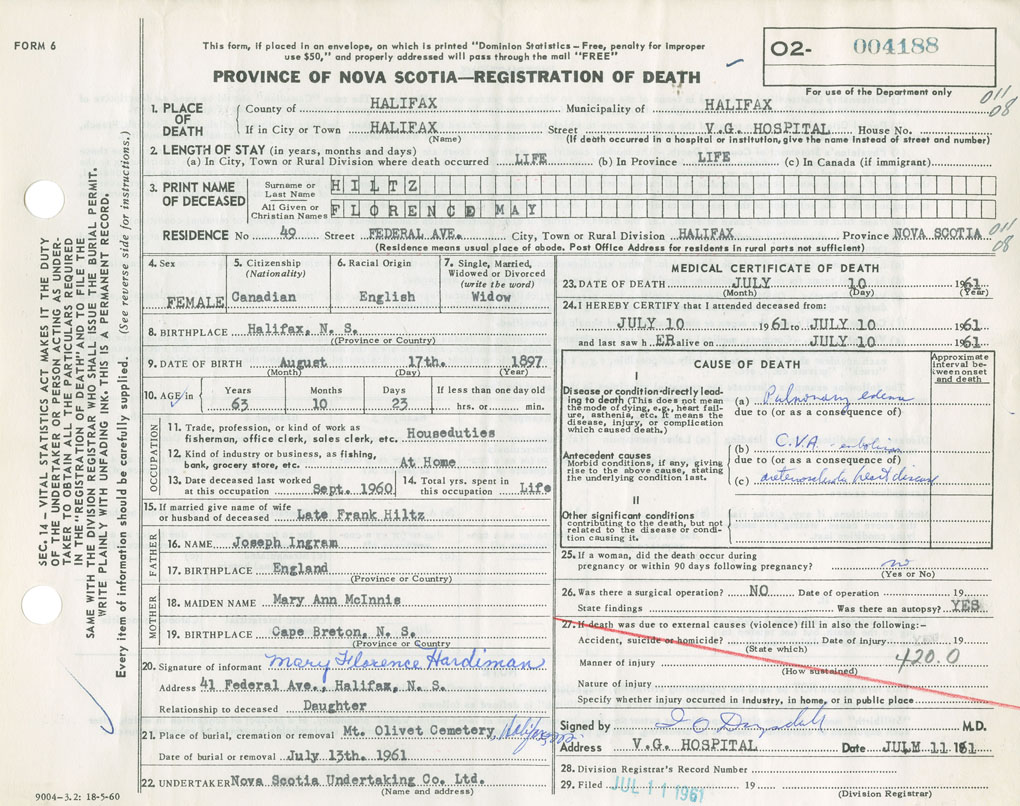 FORM 6
This form, if placed in an envelope, on which is printed "Dominion Statistics – Free, penalty for improper
use $50," and properly addressed will pass through the mail "FREE"
PROVINCE OF NOVA SCOTIA—REGISTRATION OF DEATH
O2- 004188
For use of the Department only
011
08
SEC. 14 – VITAL STATISTICS ACT MAKES IT THE DUTY
OF THE UNDERTAKER OR PERSON ACTING AS UNDER-
TAKER TO OBTAIN ALL THE PARTICULARS REQUIRED
IN THE "REGISTRATION OF DEATH" AND TO FILE THE
SAME WITH THE DIVISION REGISTRAR WHO SHALL ISSUE THE BURIAL PERMIT.
WRITE PLAINLY WITH UNFADING INK. THIS IS A PERMANENT RECORD.
Every item of information should be carefully supplied. (See reverse side for instructions.)
1. PLACE OF DEATH
County of HALIFAX Municipality of HALIFAX
If in City or Town HALIFAX Street V.G. HOSPITAL House No.
(Name) (If death occurred in a hospital or institution, give the name instead of street and number)
2. LENGTH OF STAY (in years, months and days)
(a) In City, Town or Rural Division where death occurred LIFE (b) In Province LIFE (c) In Canada (if immigrant)
3. PRINT NAME OF DECEASED
Surname or Last Name HILTZ
All Given or Christian Names FLORENCE MAY
RESIDENCE No 49 Street FEDERAL AVE. City, Town or Rural Division HALIFAX Province NOVA SCOTIA
011
08
(Residence means usual place of abode. Post Office Address for residents in rural parts not sufficient)
4. Sex
FEMALE
5. Citizenship
(Nationality)
Canadian
6. Racial Origin
English
7. Single, Married,
Widowed or Divorced
(write the word)
Widow
8. BIRTHPLACE Halifax, N. S.
((Province or Country)
9. DATE OF BIRTH August 17th. 1897
(Month) (Day) (Year)
10. AGE in
Years Months Days If less than one day old
63 10 23 hrs. or min.
OCCUPATION
11. Trade, profession, or kind of work as
fisherman, office clerk, sales clerk, etc. Houseduties
12. Kind of industry or business, as fishing,
bank, grocery store, etc. At Home
13. Date deceased last worked
at this occupation Sept. 1960
14. Total yrs. spent in
this occupation Life
15. If married give name of wife
or husband of deceased Late Frank Hiltz
FATHER
16. NAME Joseph Ingram
17. BIRTHPLACE England
(Province or Country)
MOTHER
18. MAIDEN NAME Mary Ann McInnis
19. BIRTHPLACE Cape Breton, N. S.
(Province or Country
20. Signature of informant Mary Florence Hardiman
Address 41 Federal Ave., Halifax, N. S.
Relationship to deceased Daughter
21. Place of burial, cremation or removal Mt. Olivet Cemetery, Halifax
Date of burial or removal July 13th. 1961
22. UNDERTAKER Nova Scotia Undertaking Co. Ltd.
(Name and address)
9004-3.2: 18-5-60
MEDICAL CERTIFICATE OF DEATH
23. DATE OF DEATH JULY 10 1961
(Month) (Day) (Year)
24. I HEREBY CERTIFY that I attended deceased from:
JULY 10 1961 to JULY 10 1961
and last saw hER alive on JULY 10 1961
CAUSE OF DEATH
Approximate
interval be-
tween onset
and death
I
Disease or condition directly lead-
ing to death (This does not mean
the mode of dying, e.g., heart fail-
ure, asthenia, etc. It means the
disease, injury, or complication
which caused death.)
(a) Pulmonary edema
due to (or as a consequence of)
Antecedent causes
Morbid conditions, if any, giving
rise to the above cause, stating
the underlying condition last.
(b) C.V.A. - embolism
due to (or as a consequence of)
(c) arteriosclerotic heart disease
II
Other significant conditions
contributing to the death, but not
related to the disease or condi-
tion causing it.
25. If a woman, did the death occur during
pregnancy or within 90 days following pregnancy? no
(Yes or No)
26. Was there a surgical operation? NO Date of operation 19
State findings Was there an autopsy? YES
27. If death was due to external causes (violence) fill in also the following:–
Accident, suicide or homicide? Date of injury 19
(State which)
420.0
Manner of injury
(How sustained)
Nature of injury
Specify whether injury occurred in industry, in home, or in public place
Signed by M.D.
Address V.G. HOSPITAL Date JULY 11 1961
28. Division Registrar's Record Number
29. Filed JUL 11 1961 19
(Division Registrar)